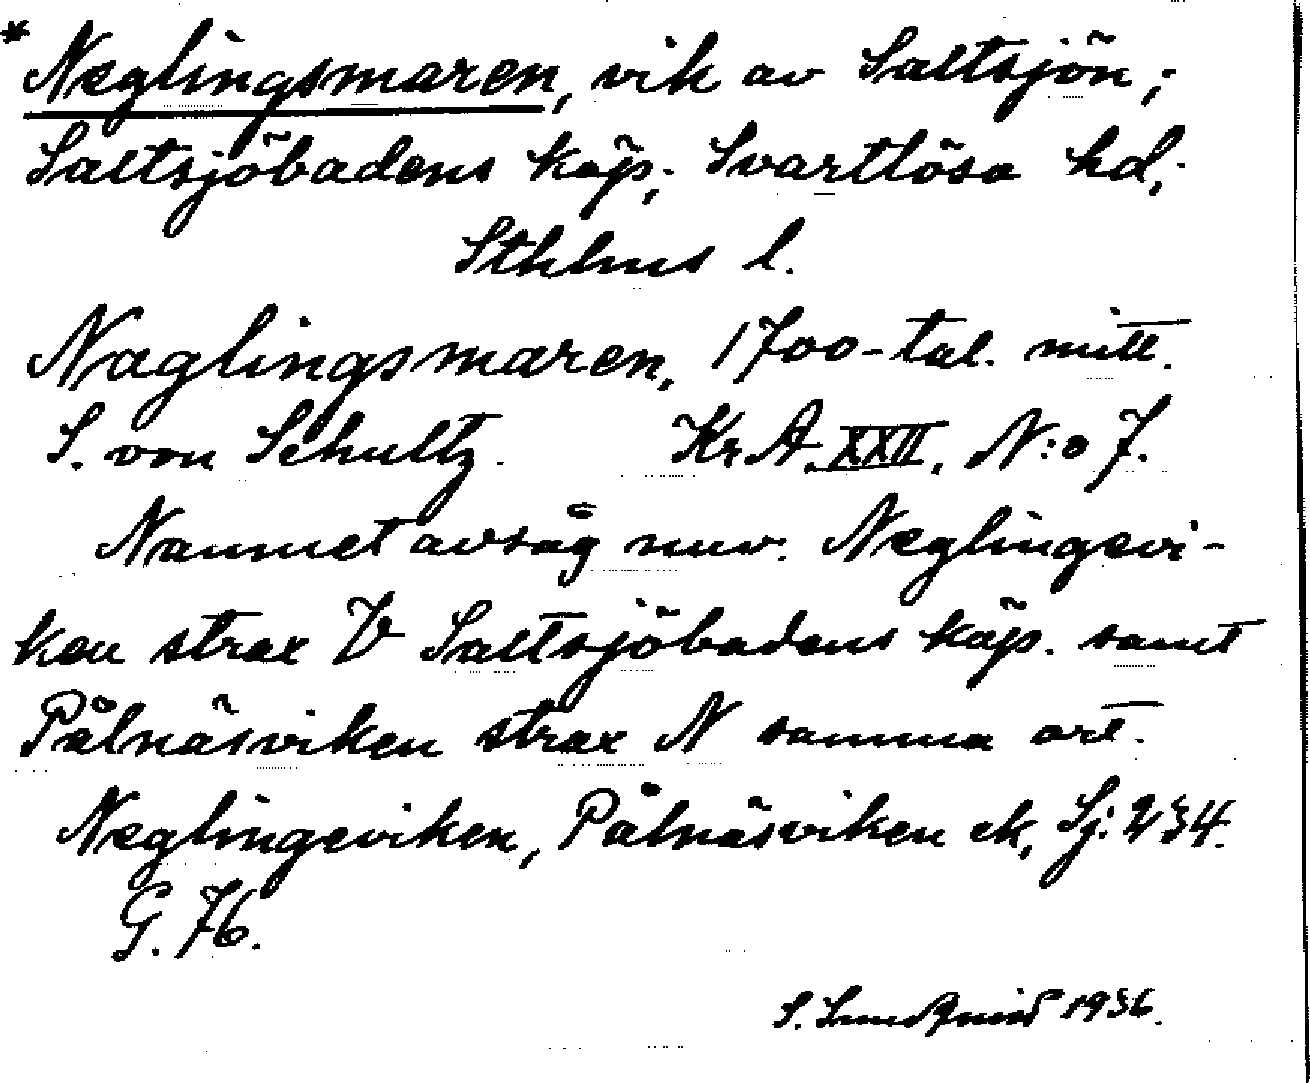 * Neglingsmaren, vik av Saltsjön;
Saltsjöbadens köp., Svartlösa hd,
Sthlms l.
Naglingsmaren, 1700-tal. mitt.
S. von Schultz. Kr A. XXII. N:o 7.
Namnet avsåg nuv. Neglingevi-
ken strax V Saltsjöbadens köp. samt
Pålnäsviken strax N samma ort.
Neglingeviken, Pålnäsviken ek, Sj: 234.
G. 76.
S. Lundqvist 1936.